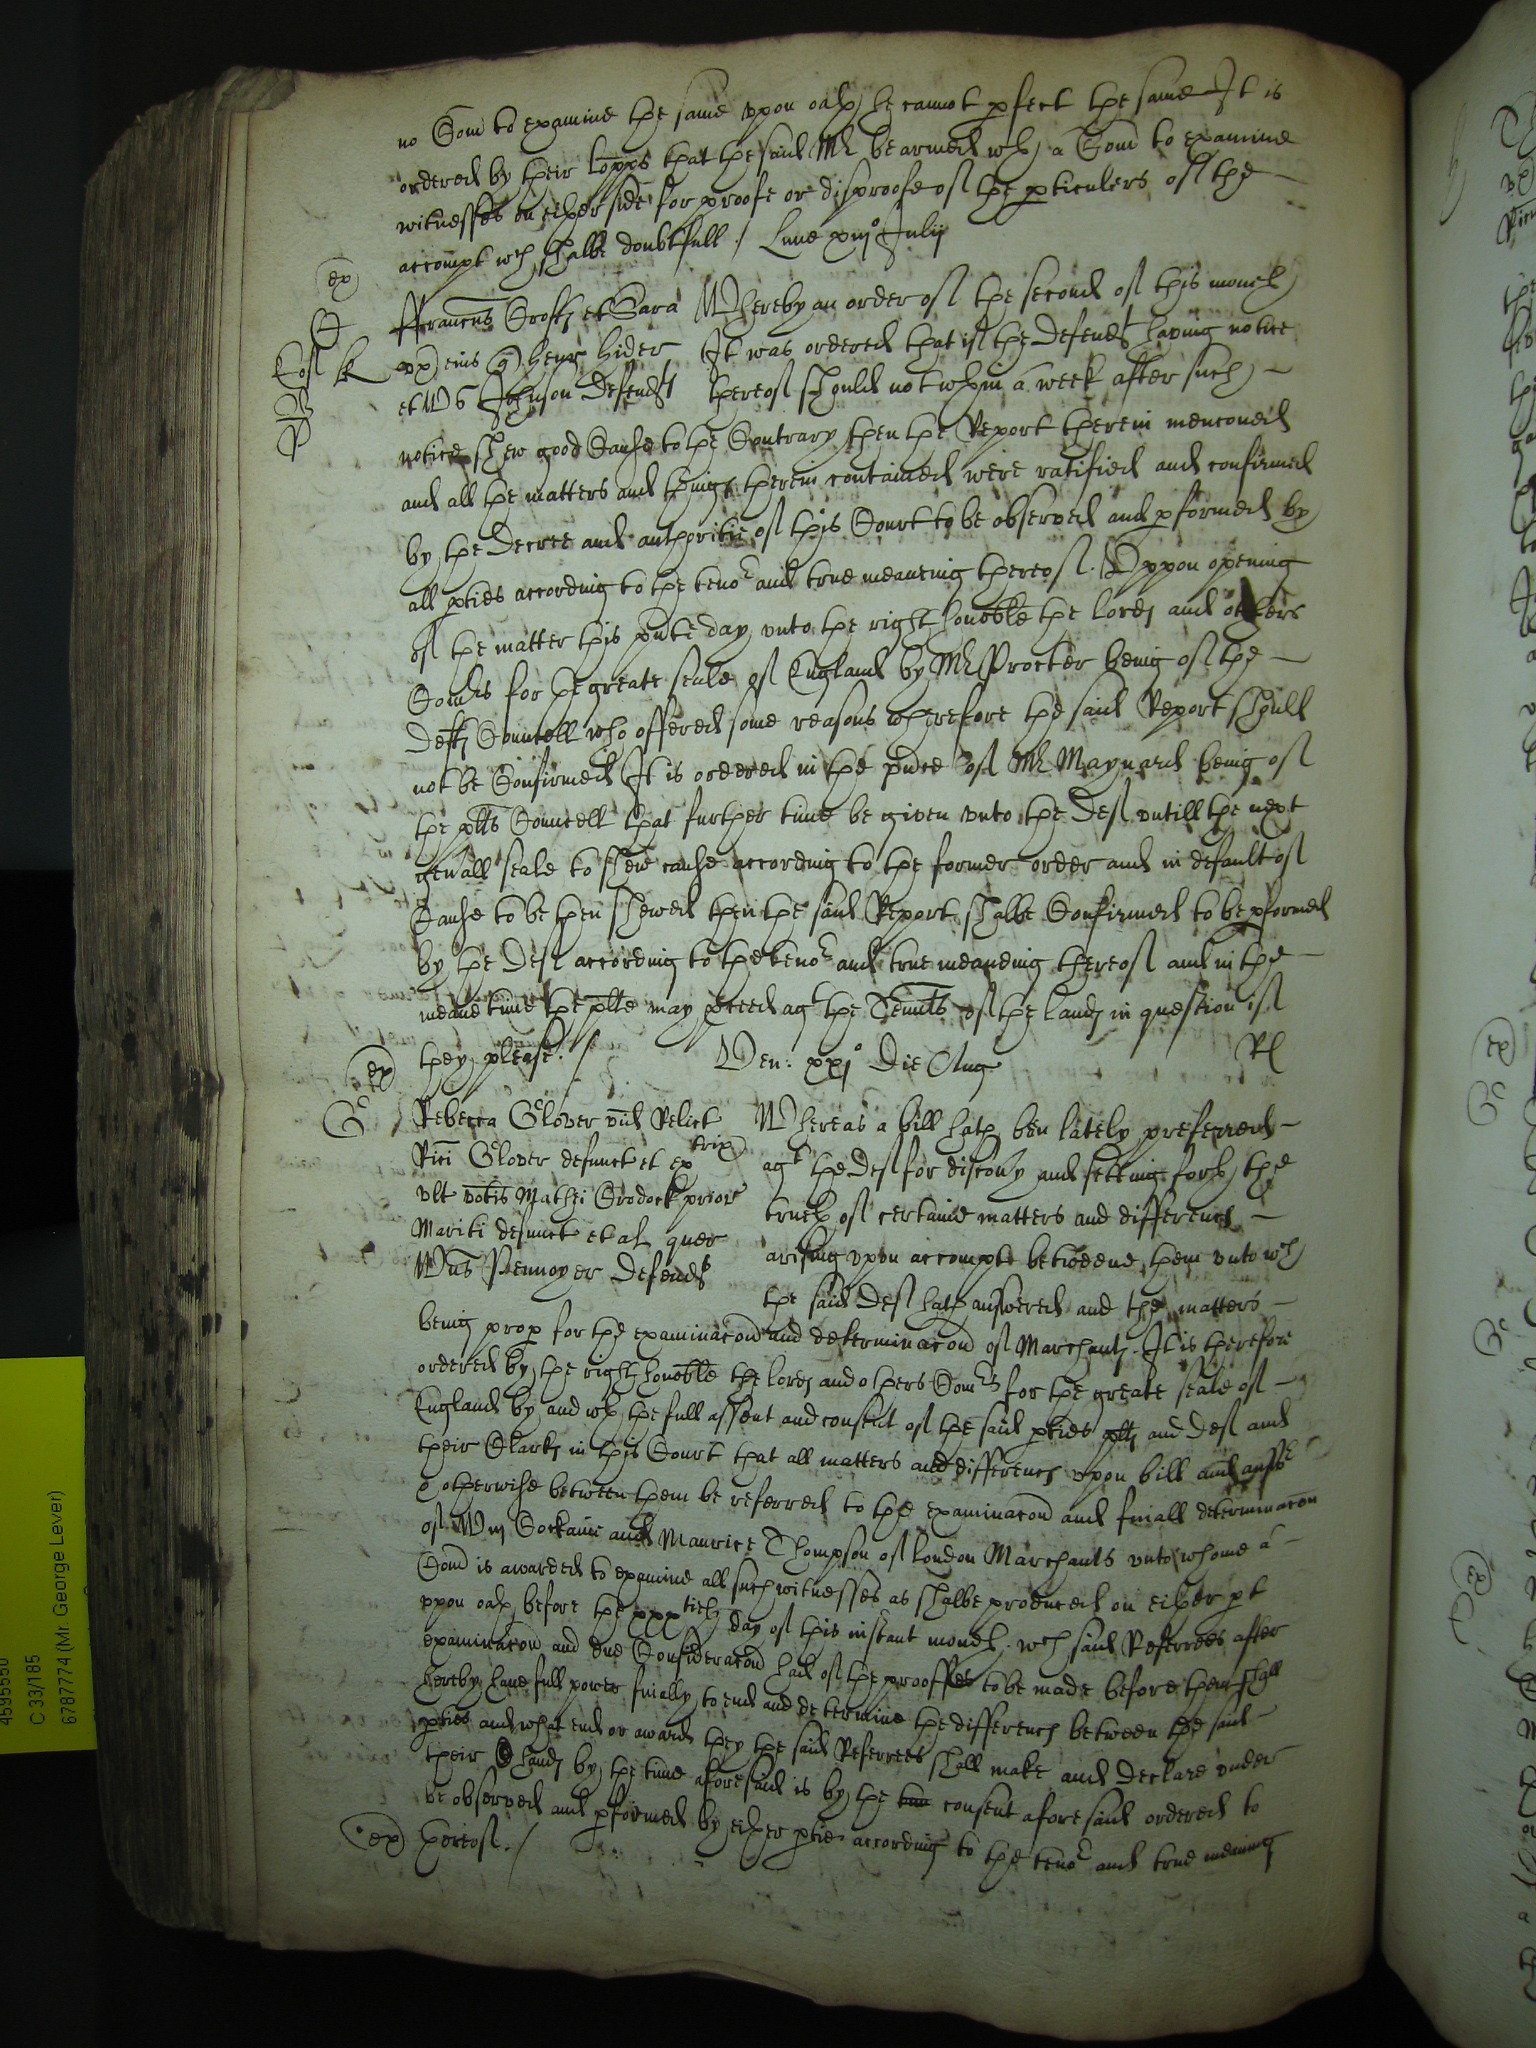 no Com to examine the same vpon oath he cannot pfect the same It is
ordered by their Lopps that the said Mr be armed wth a Com to examine
witnesses on either side for proofe or disproofe of the pticulers of the
accompt wch shalbe doubtfull / Lune xiij° Julij
ex
ffrancus Crofts et Sara Whereby an order of the second of this moneth
vx eius q henr hider It was ordered that if the Defendts having notice
et Johnson Defendts thereof should not wthin a week after such
notice shew good Cause to the Contrary then the Report therein menconed
and all the matters and things therein contained were ratified and confirmed
by the Decree and authoritie of this Court to be observed and pformed by
all pties according to the tenor and true meaneing thereof. Vppon opening
of the matter this pnte day vnto the right honoble the lords and others
Comrs for the greate seale of England by Mr Procter being of the
Defts Councell who offered some reasons wherefore the said Report should
not be Confirmed It is ordered in the pnce of Mr Maynard being of
the plts Councell that further time be given vnto the Def vntill the next
genall seale to shew cause according to the former order and in default of
Cause to be then shewed then the said Report shalbe Confirmed to be pformed
by the Def according to the tenor and true meaneing thereof and in the
meane time the plts may pceed agt the Tennts of the lands in question if
they please. /
Ven: xxj° Die Aug
Rl
ex
Gr
Rebecca Glover vid Relict
Rici Glover defunct et extrix
vlt votis Mathei Crodock prior
Mariti defunct et al quer
Wm Pennoyer Defendt
Whereas a bill hath ben lately preferred
agt the Def for discovy and setting forth the
trueth of certaine matters and differences
arising vpon accompte betweene them vnto wch
the said Def hath answered and the matters
being prop for the examinacon and determinacon of Marchants. It is therefore
ordered by the right honoble the lords and others Comrs for the greate seale of
England by and wth the full assent and consent of the said pties plts and Def and
their Clarks in this Court that all matters and differences vpon bill and answer
& otherwise between them be referred to the examinacon and finall determinacon
of Wm Cockaine and Maurice Thompson of london Marchants vnto whome a
Com is awarded to examine all such witnesses as shalbe produced on either pt
vppon oath before the xxxtieth day of this instant moneth. wch said Referrees after
examinacon and due Consideracon had of the prooffes to be made before them shall
hereby haue full power finally to end and determine the differences between the said
pties and what end or award they the said Referrees shall make and declare vnder
their hands by the time aforesaid is by the consent aforesaid ordered to
be observed and pformed by either ptie according to the tenor and true meaning
ex thereof. /
4595550
C 33/185
6787774 (Mr. George Lever)